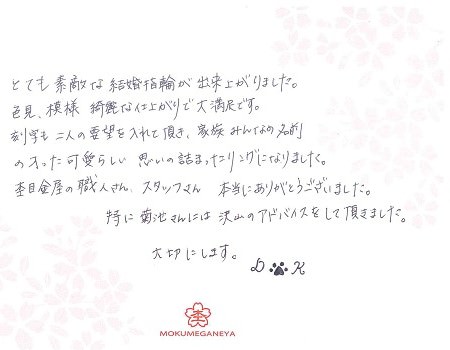 とても素敵な結婚指輪が出来上がりました。
色見、模様 綺麗な仕上がりで大満足です。
刻字も二人の要望を入れて頂き、家族みんなの名前
の入った可愛らしい 思いの詰まったリングになりました。
杢目金屋の職人さん、スタッフさん 本当にありがとうございました。
特に菊池さんには沢山のアドバイスをして頂きました。
大切にします。
D K
杢
MOKUMEGANEYA